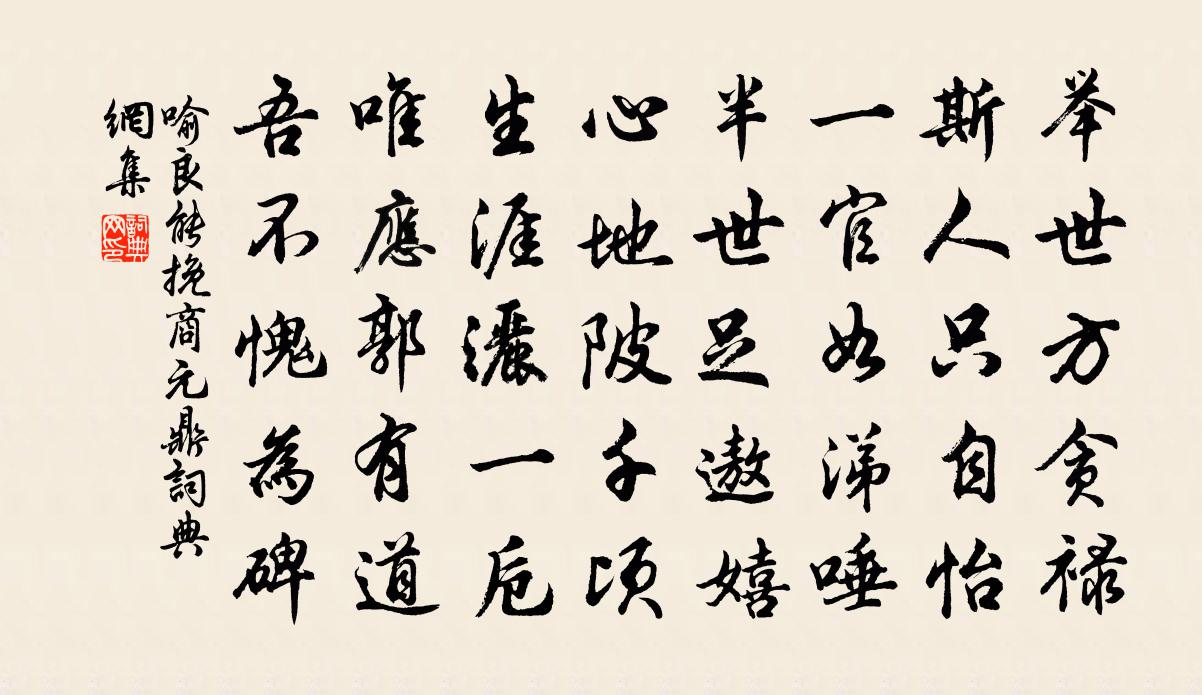 举世方贪禄
斯人只自怡
一官如涕唾
半世足遨嬉
心地陂千顷
生涯灑一卮
唯應郭有道
吾不愧為碑
喻良能挽商元鼎詞典
網集
詞典
网印